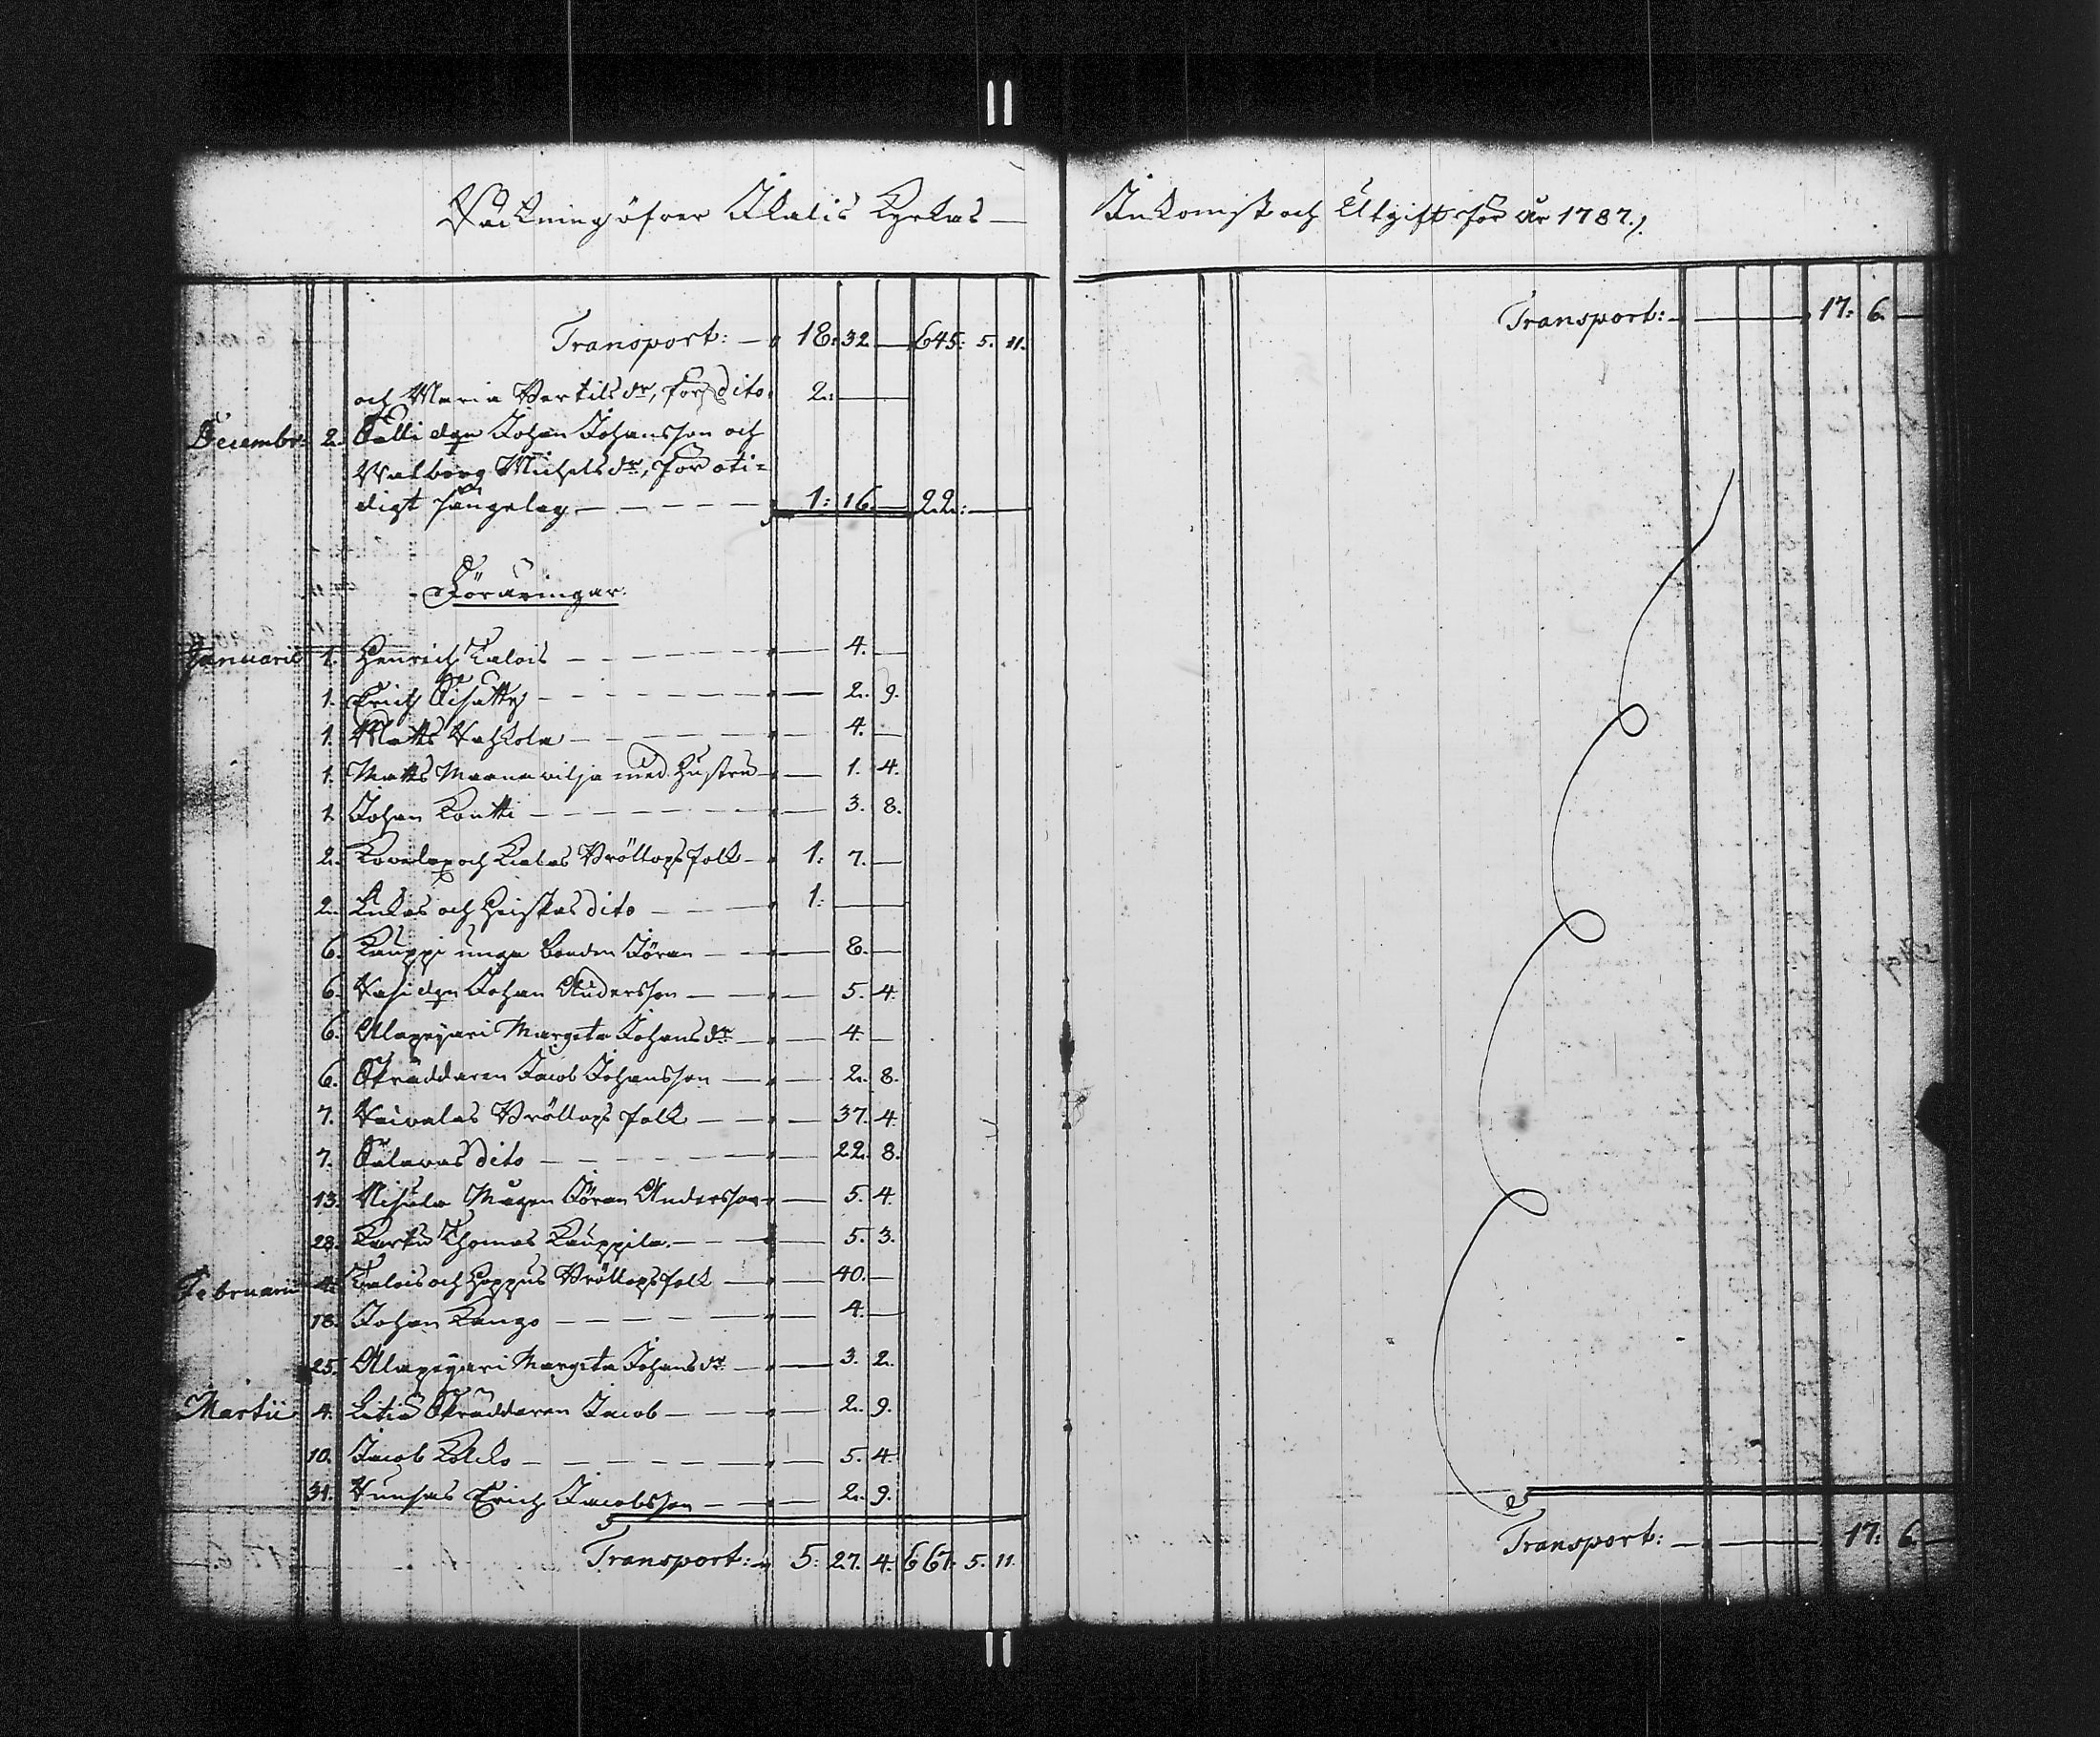 Räkning öfver Ikalis Kyrkas — Inkomst och Utgift för år 1787.
Transport: — 18: 32. — 645: 5. 11.
och Maria Bertils dr, för dito. 2: —
Decembr: 2. Salli dgn Johan Johansson och
Walborg Michels dr, för oti=
digt sängelag — 1: 16. — 22: —
Föräringar:
Januarii 1. Henrich Kalois — 4. —
1. Erich — 2. 9.
1. Matts Wahkola — 4. —
1. Matts Maanavilja med Hustru — 1. 4.
1. Johan Kontti — 3. 8.
2. och Bröllops folk — 1: 7. —
2. och Heiskas dito — 1: —
6. Kauppi unga bonden Jöran — 8. —
6. Wasi dgn Johan Andersson — 5. 4.
6. Alapeijari Margeta Johans dr — 4. —
6. Skräddaren Jacob Johansson — 2. 8.
7. Waivalas Bröllops folk — 37. 4.
7. Salavas dito — 22. 8.
13. Nisula Mågen Jöran Andersson — 5. 4.
28. Karku Thomas Kauppila. — 5. 3.
Februarii 4. Kalois och Hoppus Bröllops folk — 40. —
18. Johan Kango — 4. —
25. Alapeijari Margeta Johans dr — 3. 2.
Martii 4. Skräddaren Jacob — 2. 9.
10. Jacob — 5. 4.
31. Erich Jacobsson — 2. 9.
Transport: — 5: 27. 4. 667. 5. 11.
Transport: — 17: 6. —
Transport: — 17: 6. —